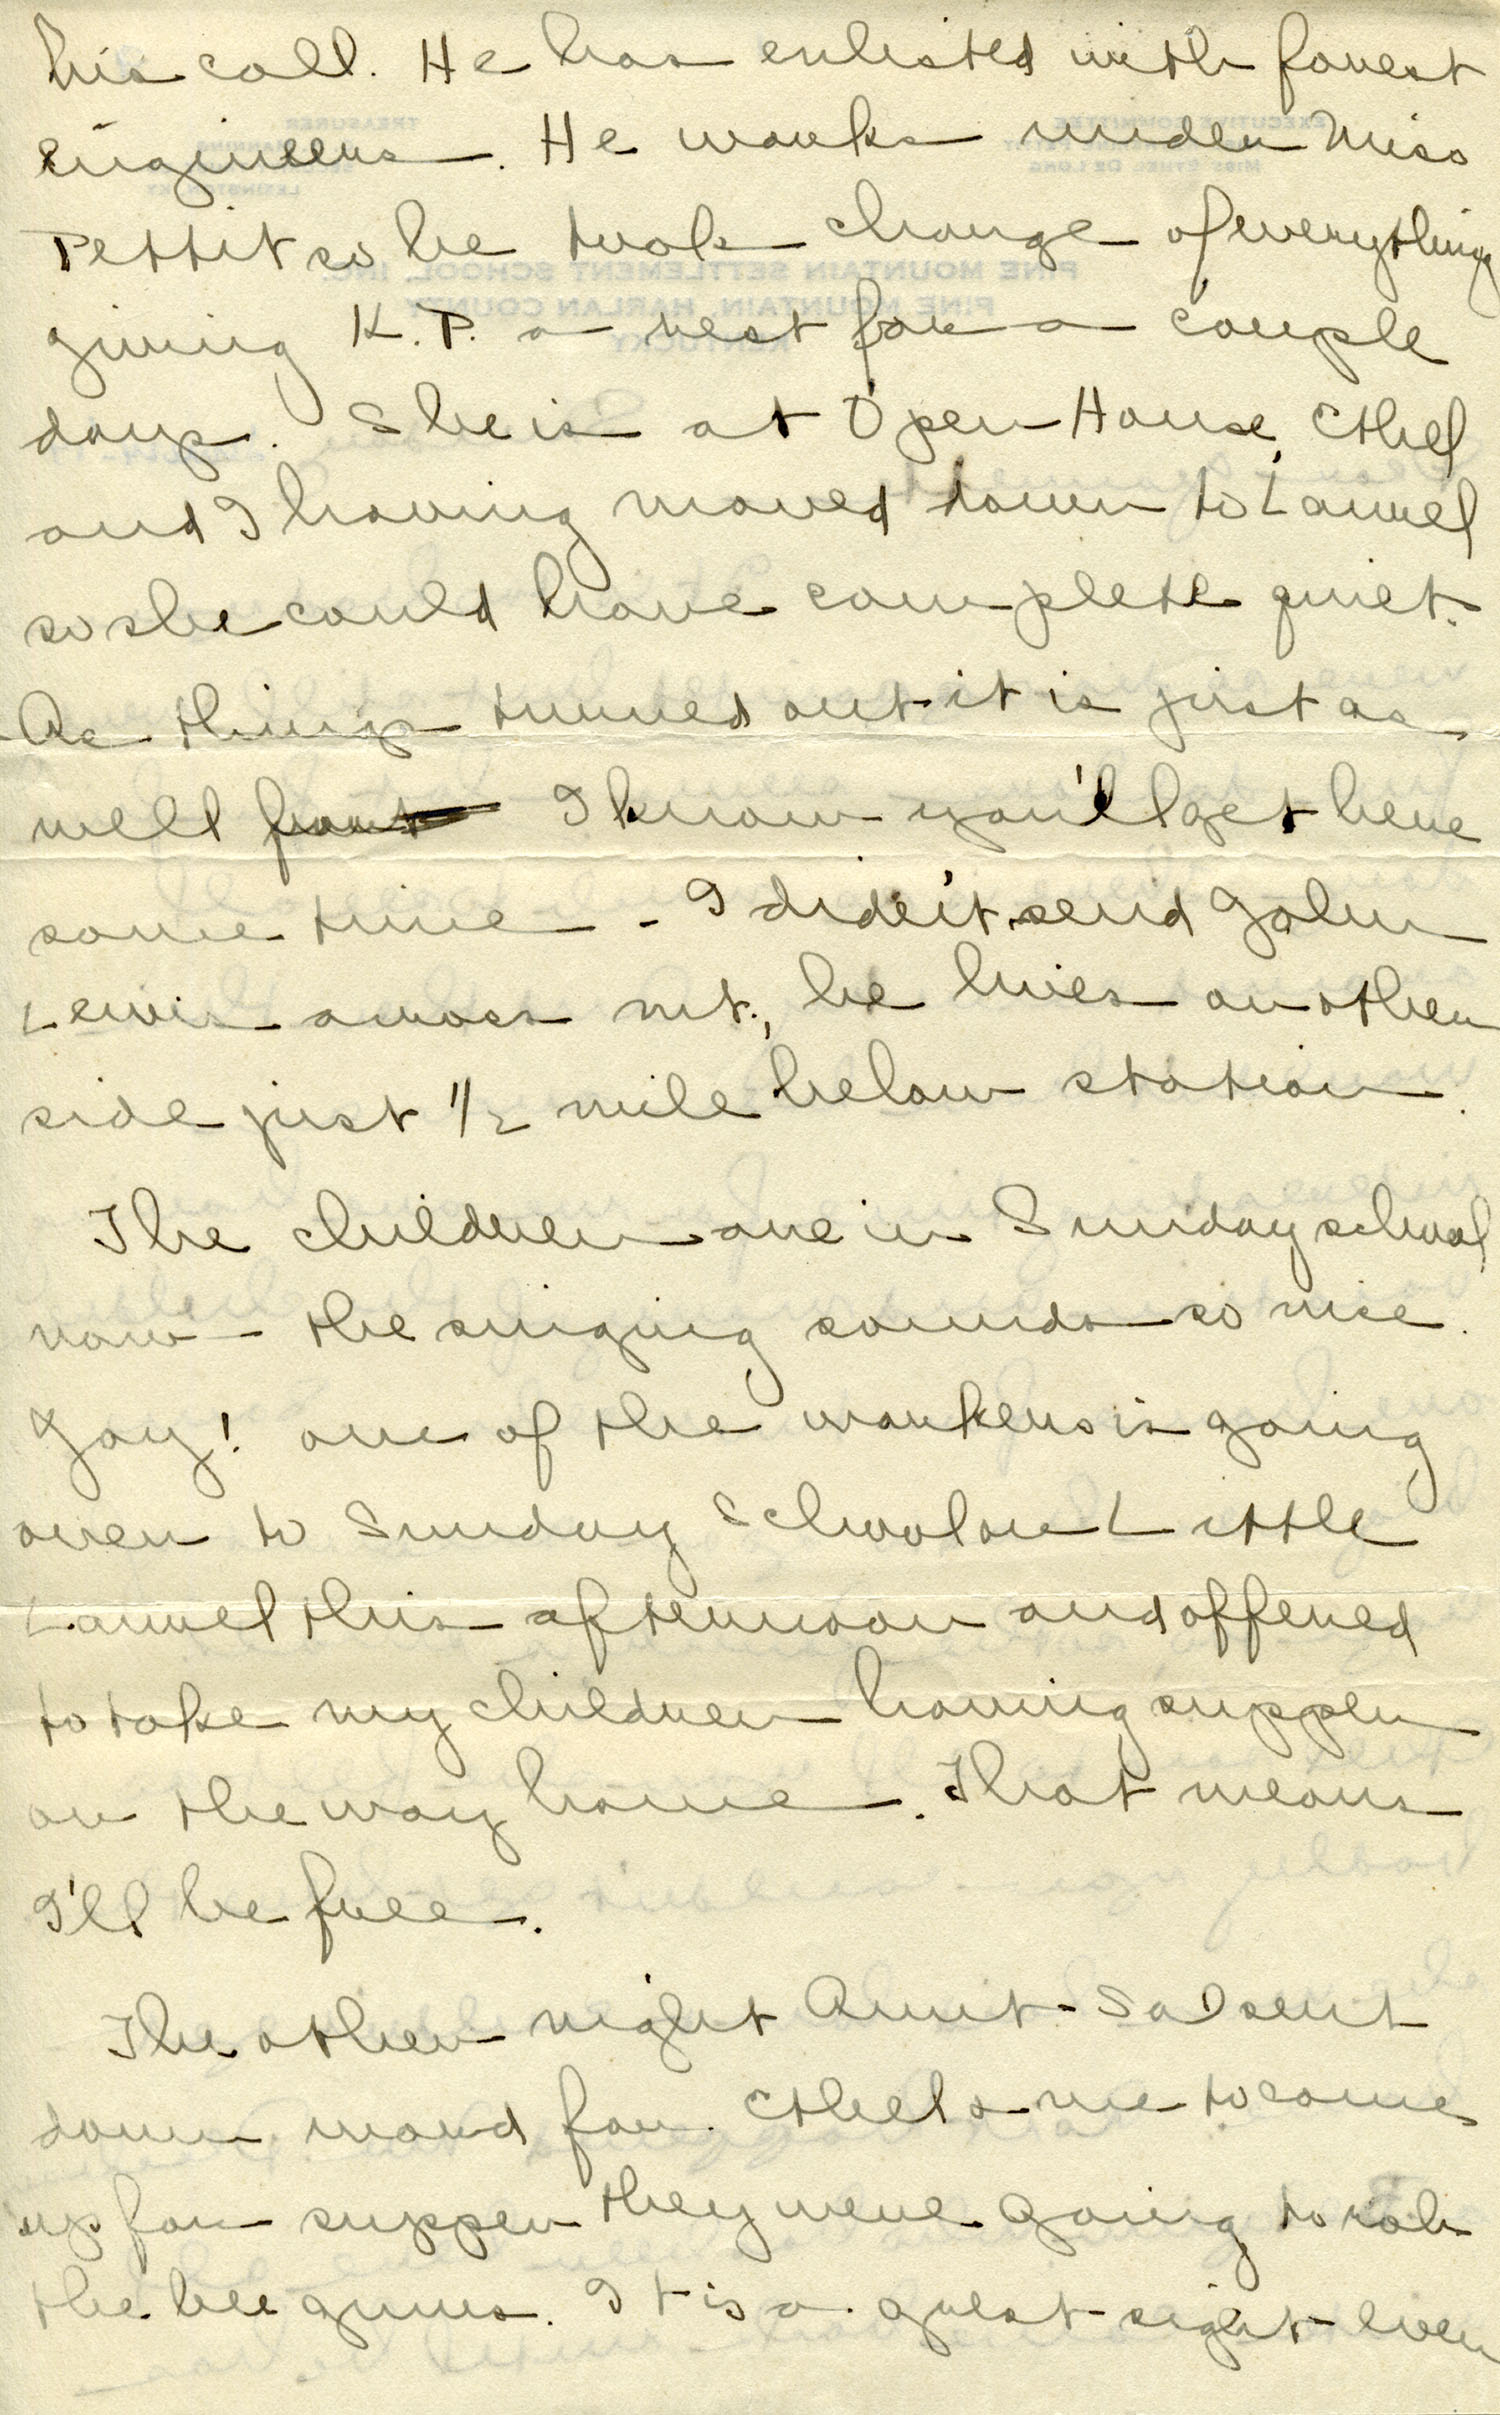 his call. He has enlisted with forest
engineers. He works under Miss
Pettit so he took charge of everything
giving K.P. a rest for a couple
days. She is at Open House, Ethel
and I having moved down to Laurel
so she could have complete quiet.
As things turned out it is just as
well for I know you'll get here
some time - I didn't send John
Lewis across mt., he lives on other
side just 1/2 mile below station.
The children are in Sunday school
now - the singing sounds so nice.
Joy! one of the workers is going
over to Sunday School on Little
Laurel this afternoon and offered
to take my children having supper
on the way home. That means
I'll be free.
The other night Aunt Sal sent
down word for Ethel & me to come
up for supper they were going to rob
the bee gums. It is a great sight even